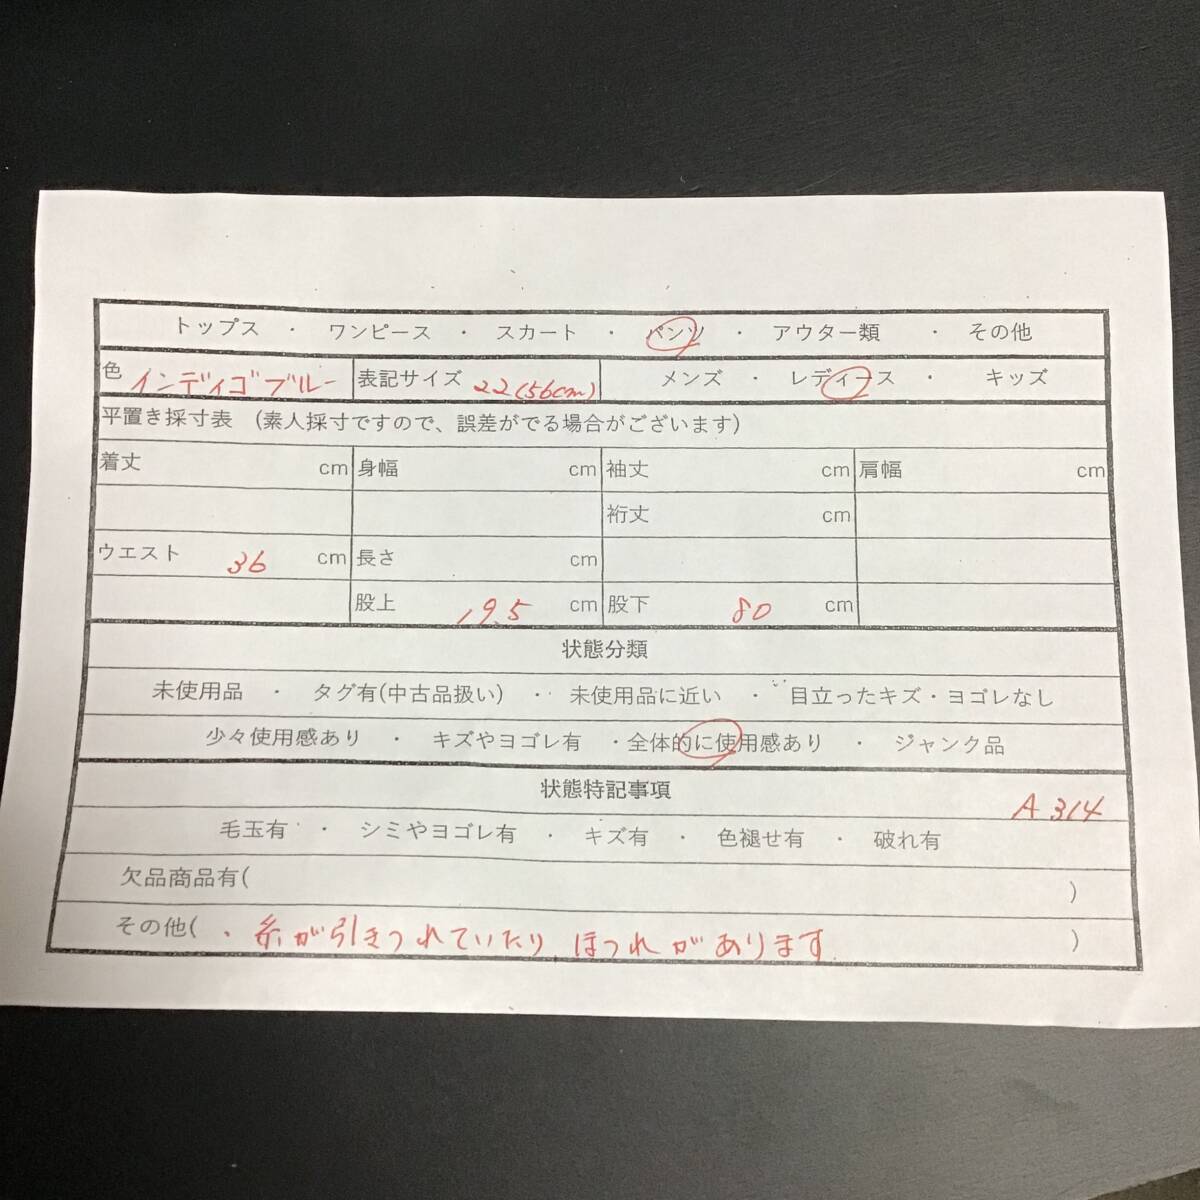 トップス ・ ワンピース ・ スカート ・ パンツ ・ アウター類 ・ その他
色 インディゴブルー 表記サイズ 22(56cm) メンズ ・ レディース ・ キッズ
平置き採寸表 (素人採寸ですので、誤差がでる場合がございます)
着丈 cm 身幅 cm 袖丈 cm 肩幅 cm
裄丈 cm
ウエスト 36 cm 長さ cm
股上 19.5 cm 股下 80 cm
状態分類
未使用品 ・ タグ有(中古品扱い) ・ 未使用品に近い ・ 目立ったキズ・ヨゴレなし
少々使用感あり ・ キズやヨゴレ有 ・全体的に使用感あり ・ ジャンク品
状態特記事項 A314
毛玉有 ・ シミやヨゴレ有 ・ キズ有 ・ 色褪せ有 ・ 破れ有
欠品商品有( )
その他( ・糸が引きつれていたり、ほつれがあります。 )